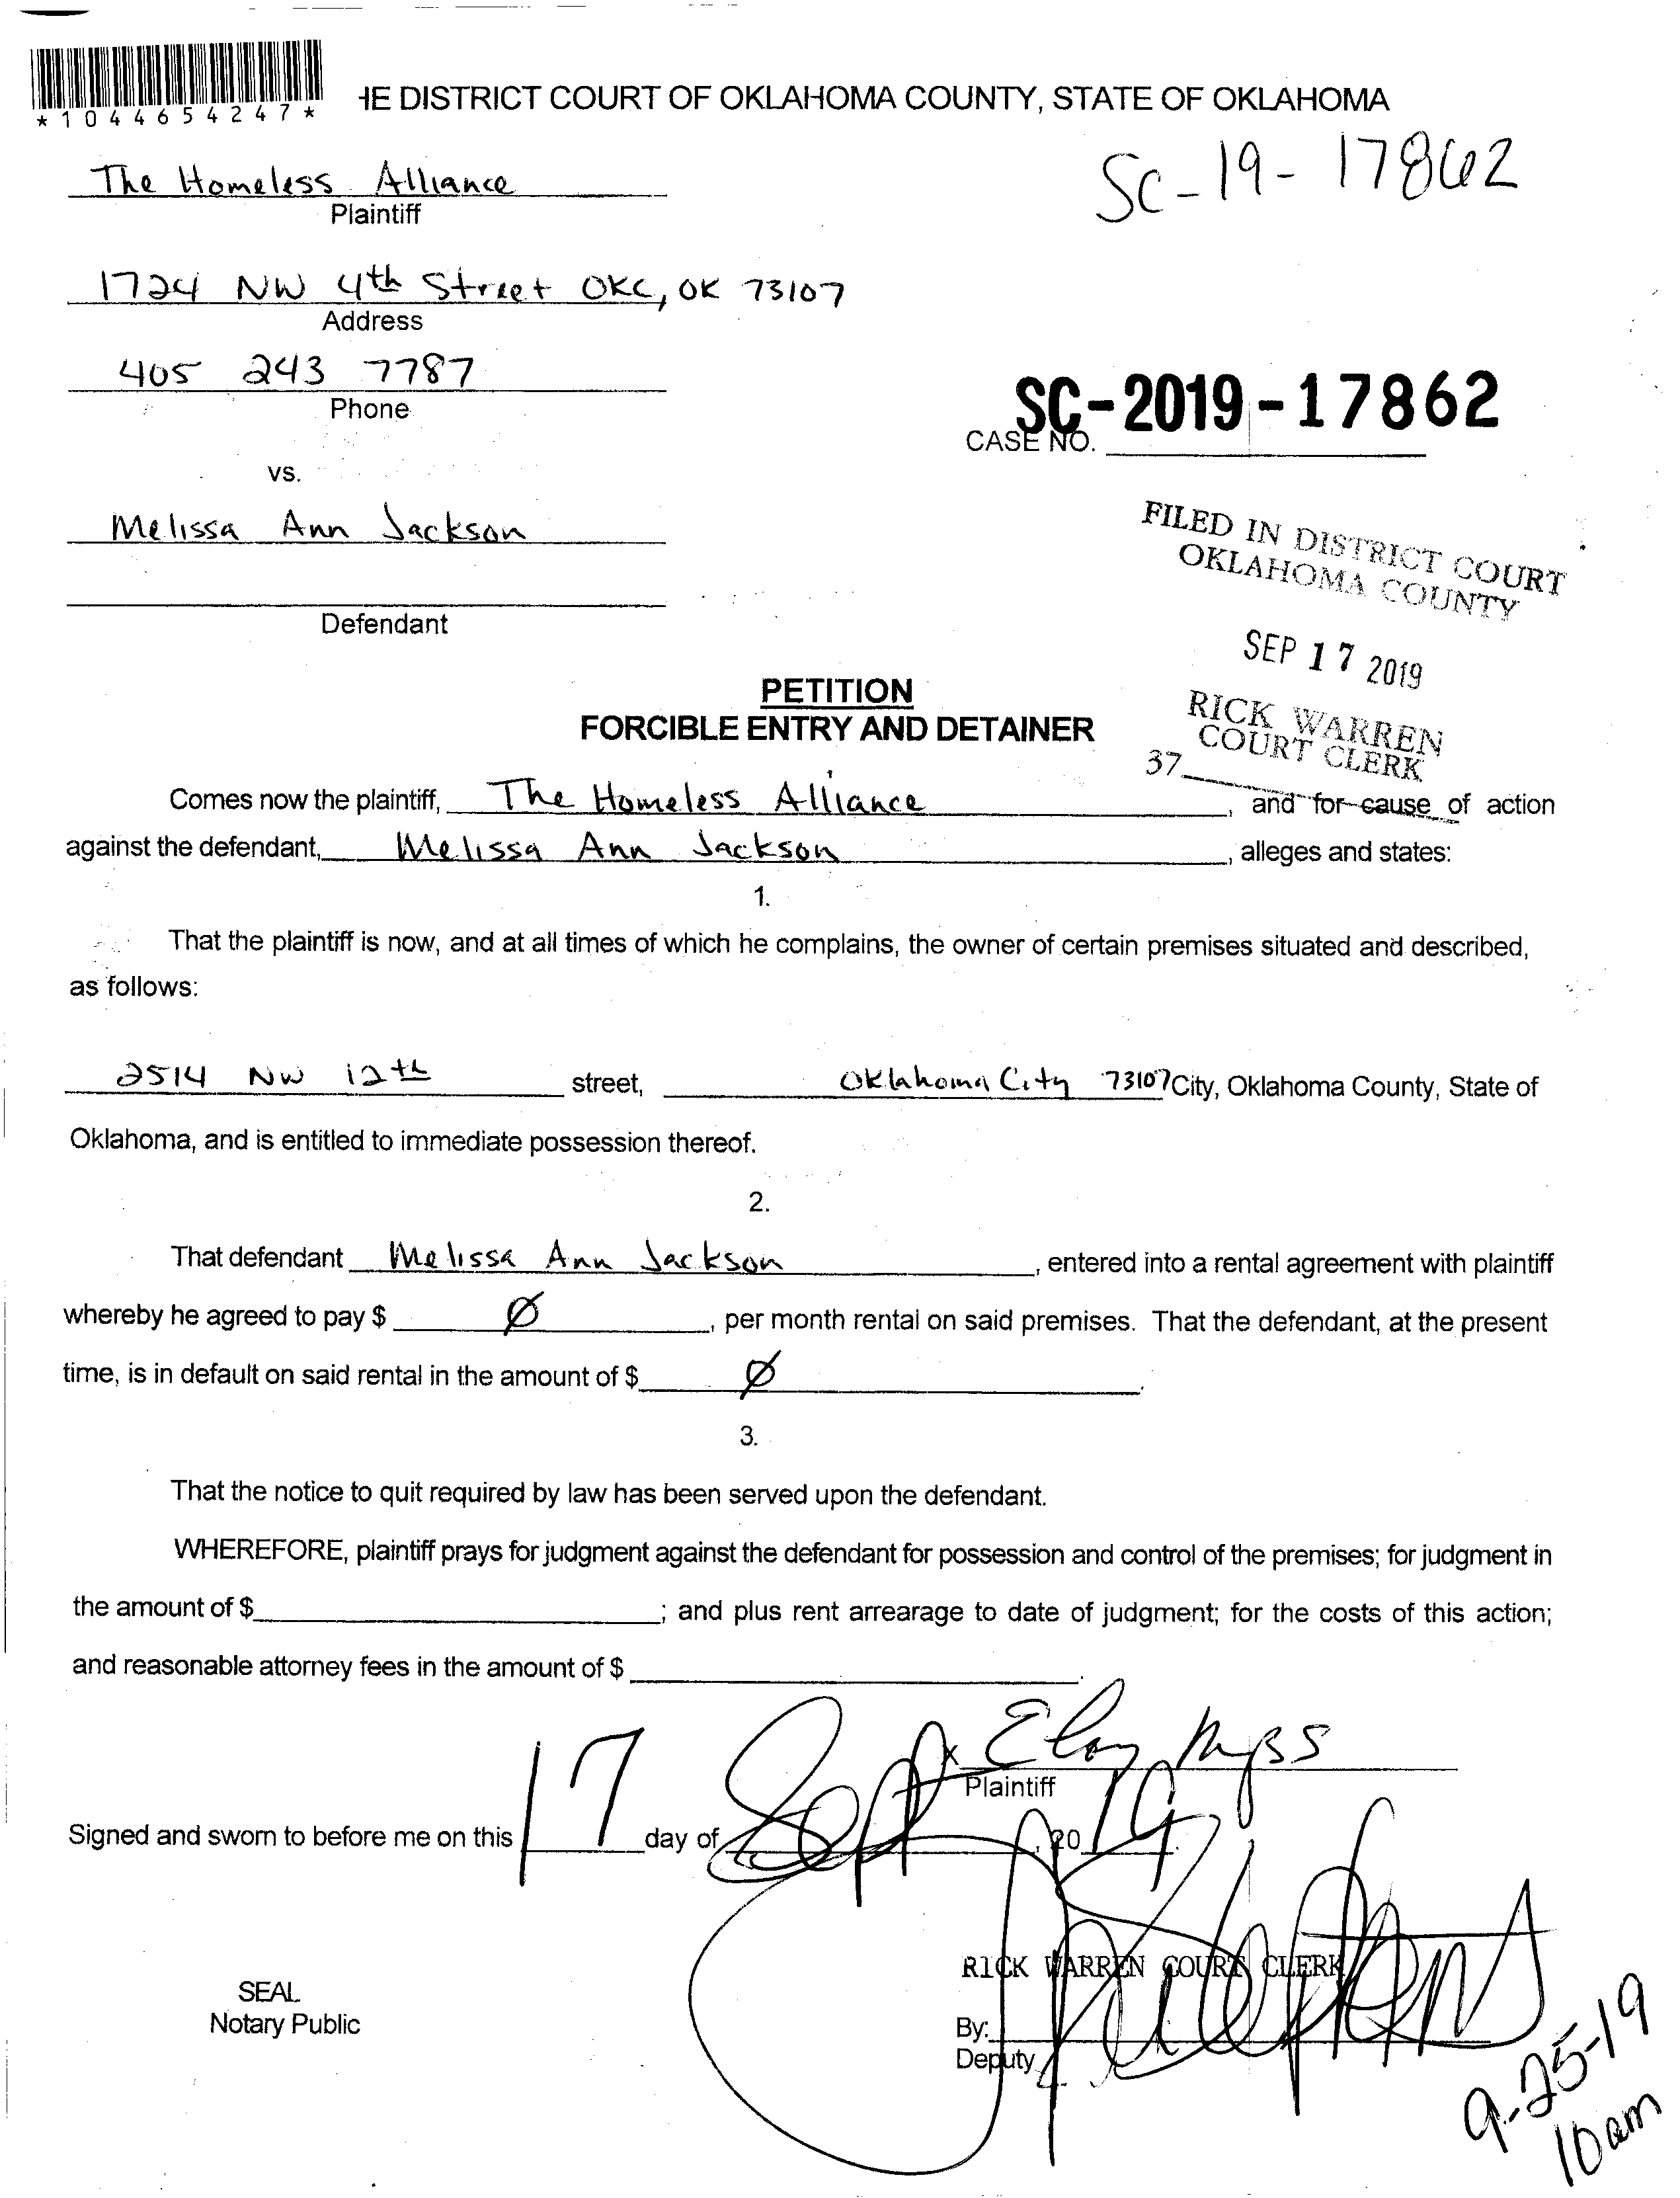 *1044654247*
HE DISTRICT COURT OF OKLAHOMA COUNTY, STATE OF OKLAHOMA
SC-19-17862
The Homeless Alliance
Plaintiff
1724 NW 4th Street OKC, OK 73107
Address
405 243 7787
Phone
SC-2019-17862
CASE NO.
vs.
Melissa Ann Jackson
Defendant
FILED IN DISTRICT COURT
OKLAHOMA COUNTY
SEP 17 2019
RICK WARREN
COURT CLERK
37
PETITION
FORCIBLE ENTRY AND DETAINER
Comes now the plaintiff, The Homeless Alliance, and for cause of action
against the defendant, Melissa Ann Jackson, alleges and states:
1.
That the plaintiff is now, and at all times of which he complains, the owner of certain premises situated and described,
as follows:
2514 NW 12th street, Oklahoma City 73107 City, Oklahoma County, State of
Oklahoma, and is entitled to immediate possession thereof.
2.
That defendant Melissa Ann Jackson, entered into a rental agreement with plaintiff
whereby he agreed to pay $ Ø, per month rental on said premises. That the defendant, at the present
time, is in default on said rental in the amount of $ Ø.
3.
That the notice to quit required by law has been served upon the defendant.
WHEREFORE, plaintiff prays for judgment against the defendant for possession and control of the premises; for judgment in
the amount of $; and plus rent arrearage to date of judgment; for the costs of this action;
and reasonable attorney fees in the amount of $.
x
Plaintiff
Signed and sworn to before me on this 17 day of Sept, 2019.
RICK WARREN COURT CLERK
SEAL
Notary Public
By:
Deputy
9-25-19
10am